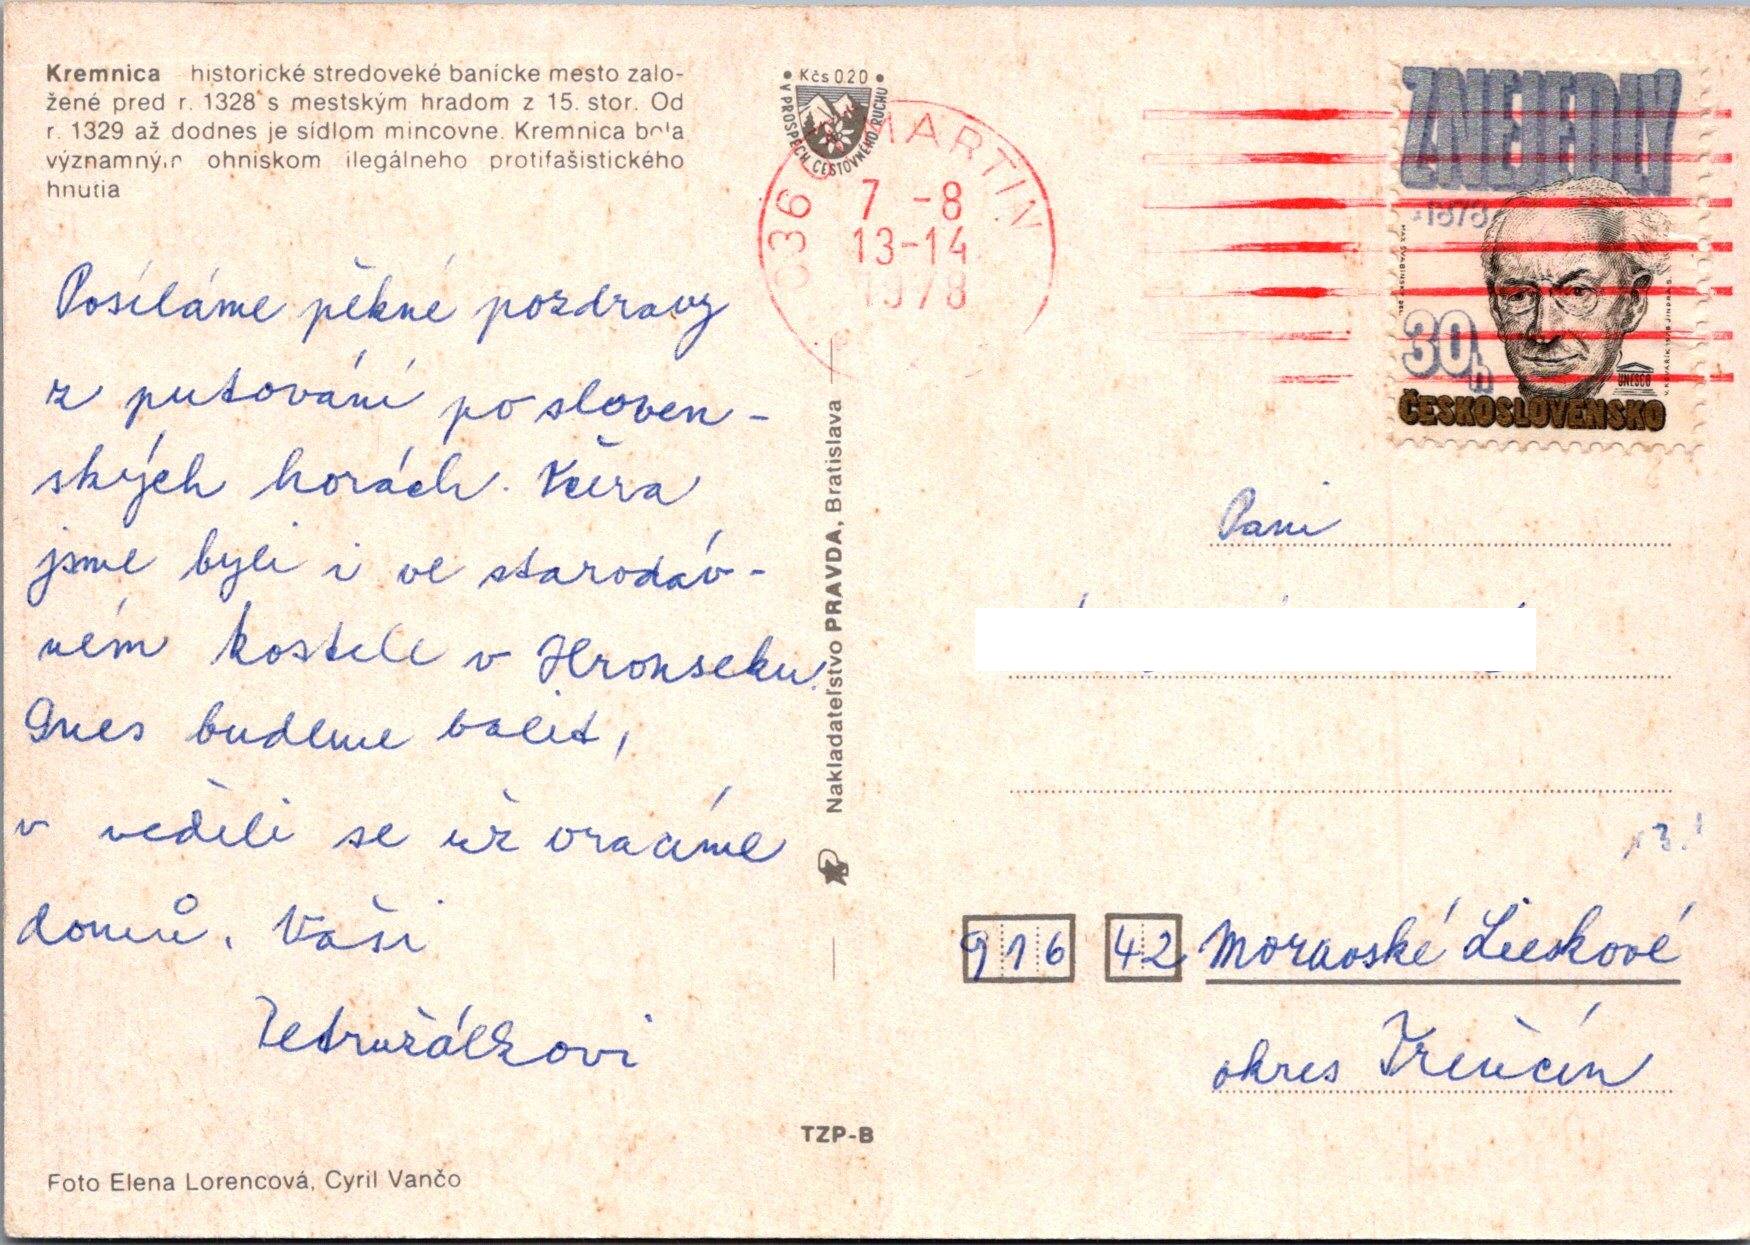 Kremnica historické stredoveké banícke mesto zalo-
žené pred r. 1328 s mestským hradom z 15. stor. Od
r. 1329 až dodnes je sídlom mincovne. Kremnica bola
významným ohniskom ilegálneho protifašistického
hnutia
Posíláme pěkné pozdravy
z putování po sloven-
ských horách. Včera
jsme byli i ve starodáv-
ném kostele v Hronseku.
Dnes budeme balit,
v neděli se už vracíme
domů. Vaši
Petružálkovi
Foto Elena Lorencová, Cyril Vančo
Nakladateľstvo PRAVDA, Bratislava
TZP-B
Kčs 0.20
V PROSPECH CESTOVNÉHO RUCHU
036 MARTIN
7 -8
13-14
1978
Z NEJEDLÝ
*1878
30h
UNESCO
ČESKOSLOVENSKO
Pani
916 42 Moravské Lieskové
okres Trenčín